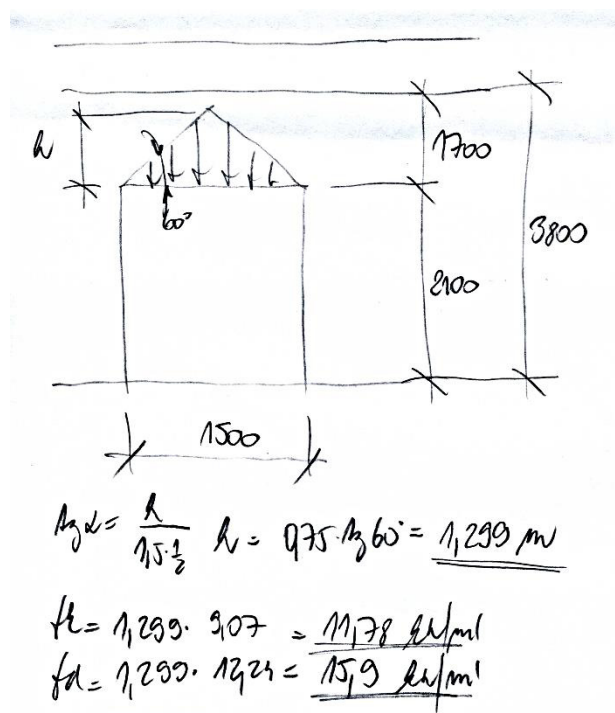 h
1700
60°
3800
2100
1500
tg α = h / 1,5·1/2 h = 0,75·tg 60° = 1,299 m
fk = 1,299 · 9,07 = 11,78 kN/m
fd = 1,299 · 12,24 = 15,9 kN/m